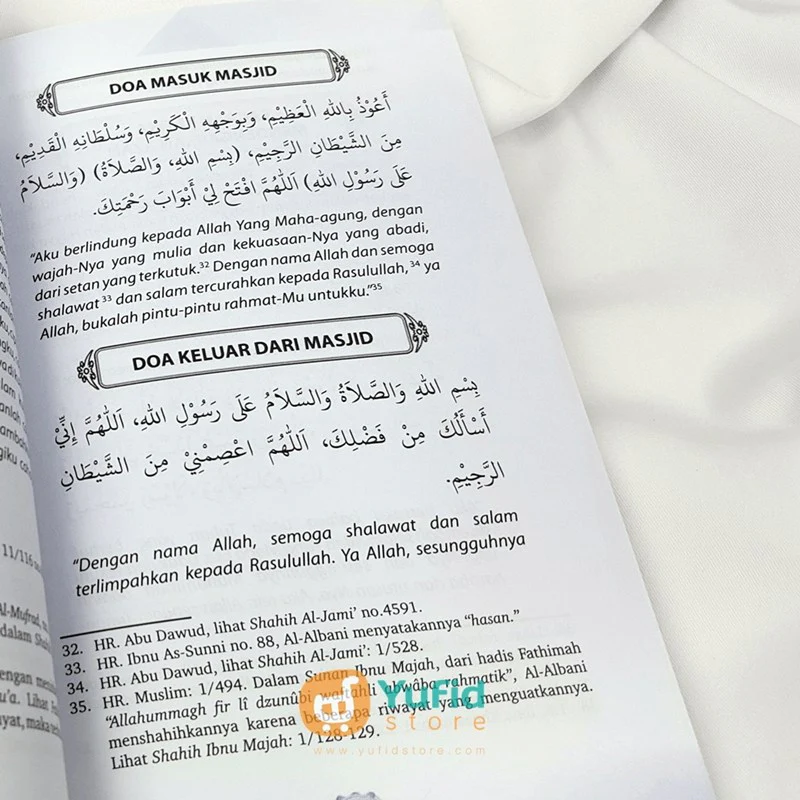 DOA MASUK MASJID
أَعُوْذُ بِاللهِ الْعَظِيْمِ، وَبِوَجْهِهِ الْكَرِيْمِ، وَسُلْطَانِهِ الْقَدِيْمِ،
مِنَ الشَّيْطَانِ الرَّجِيْمِ، (بِسْمِ اللهِ، وَالصَّلَاةُ) (وَالسَّلَامُ
عَلَى رَسُوْلِ اللهِ) اَللَّهُمَّ افْتَحْ لِيْ أَبْوَابَ رَحْمَتِكَ.
"Aku berlindung kepada Allah Yang Maha-agung, dengan
wajah-Nya yang mulia dan kekuasaan-Nya yang abadi,
dari setan yang terkutuk.³² Dengan nama Allah dan semoga
shalawat ³³ dan salam tercurahkan kepada Rasulullah, ³⁴ ya
Allah, bukalah pintu-pintu rahmat-Mu untukku."³⁵
DOA KELUAR DARI MASJID
بِسْمِ اللهِ وَالصَّلَاةُ وَالسَّلَامُ عَلَى رَسُوْلِ اللهِ، اَللَّهُمَّ إِنِّيْ
أَسْأَلُكَ مِنْ فَضْلِكَ، اَللَّهُمَّ اعْصِمْنِيْ مِنَ الشَّيْطَانِ
الرَّجِيْمِ.
"Dengan nama Allah, semoga shalawat dan salam
terlimpahkan kepada Rasulullah. Ya Allah, sesungguhnya
32. HR. Abu Dawud, lihat Shahih Al-Jami' no.4591.
33. HR. Ibnu As-Sunni no. 88, Al-Albani menyatakannya "hasan."
34. HR. Abu Dawud, lihat Shahih Al-Jami': 1/528.
35. HR. Muslim: 1/494. Dalam Sunan Ibnu Majah, dari hadis Fathimah
"Allahummagh fir lî dzunûbi waftahli abwâba rahmatik", Al-Albani
menshahihkannya karena beberapa riwayat yang menguatkannya.
Lihat Shahih Ibnu Majah: 1/128-129.
YuFid
store
www.yufidstore.com
11/116
Al-Mufrad
dalam